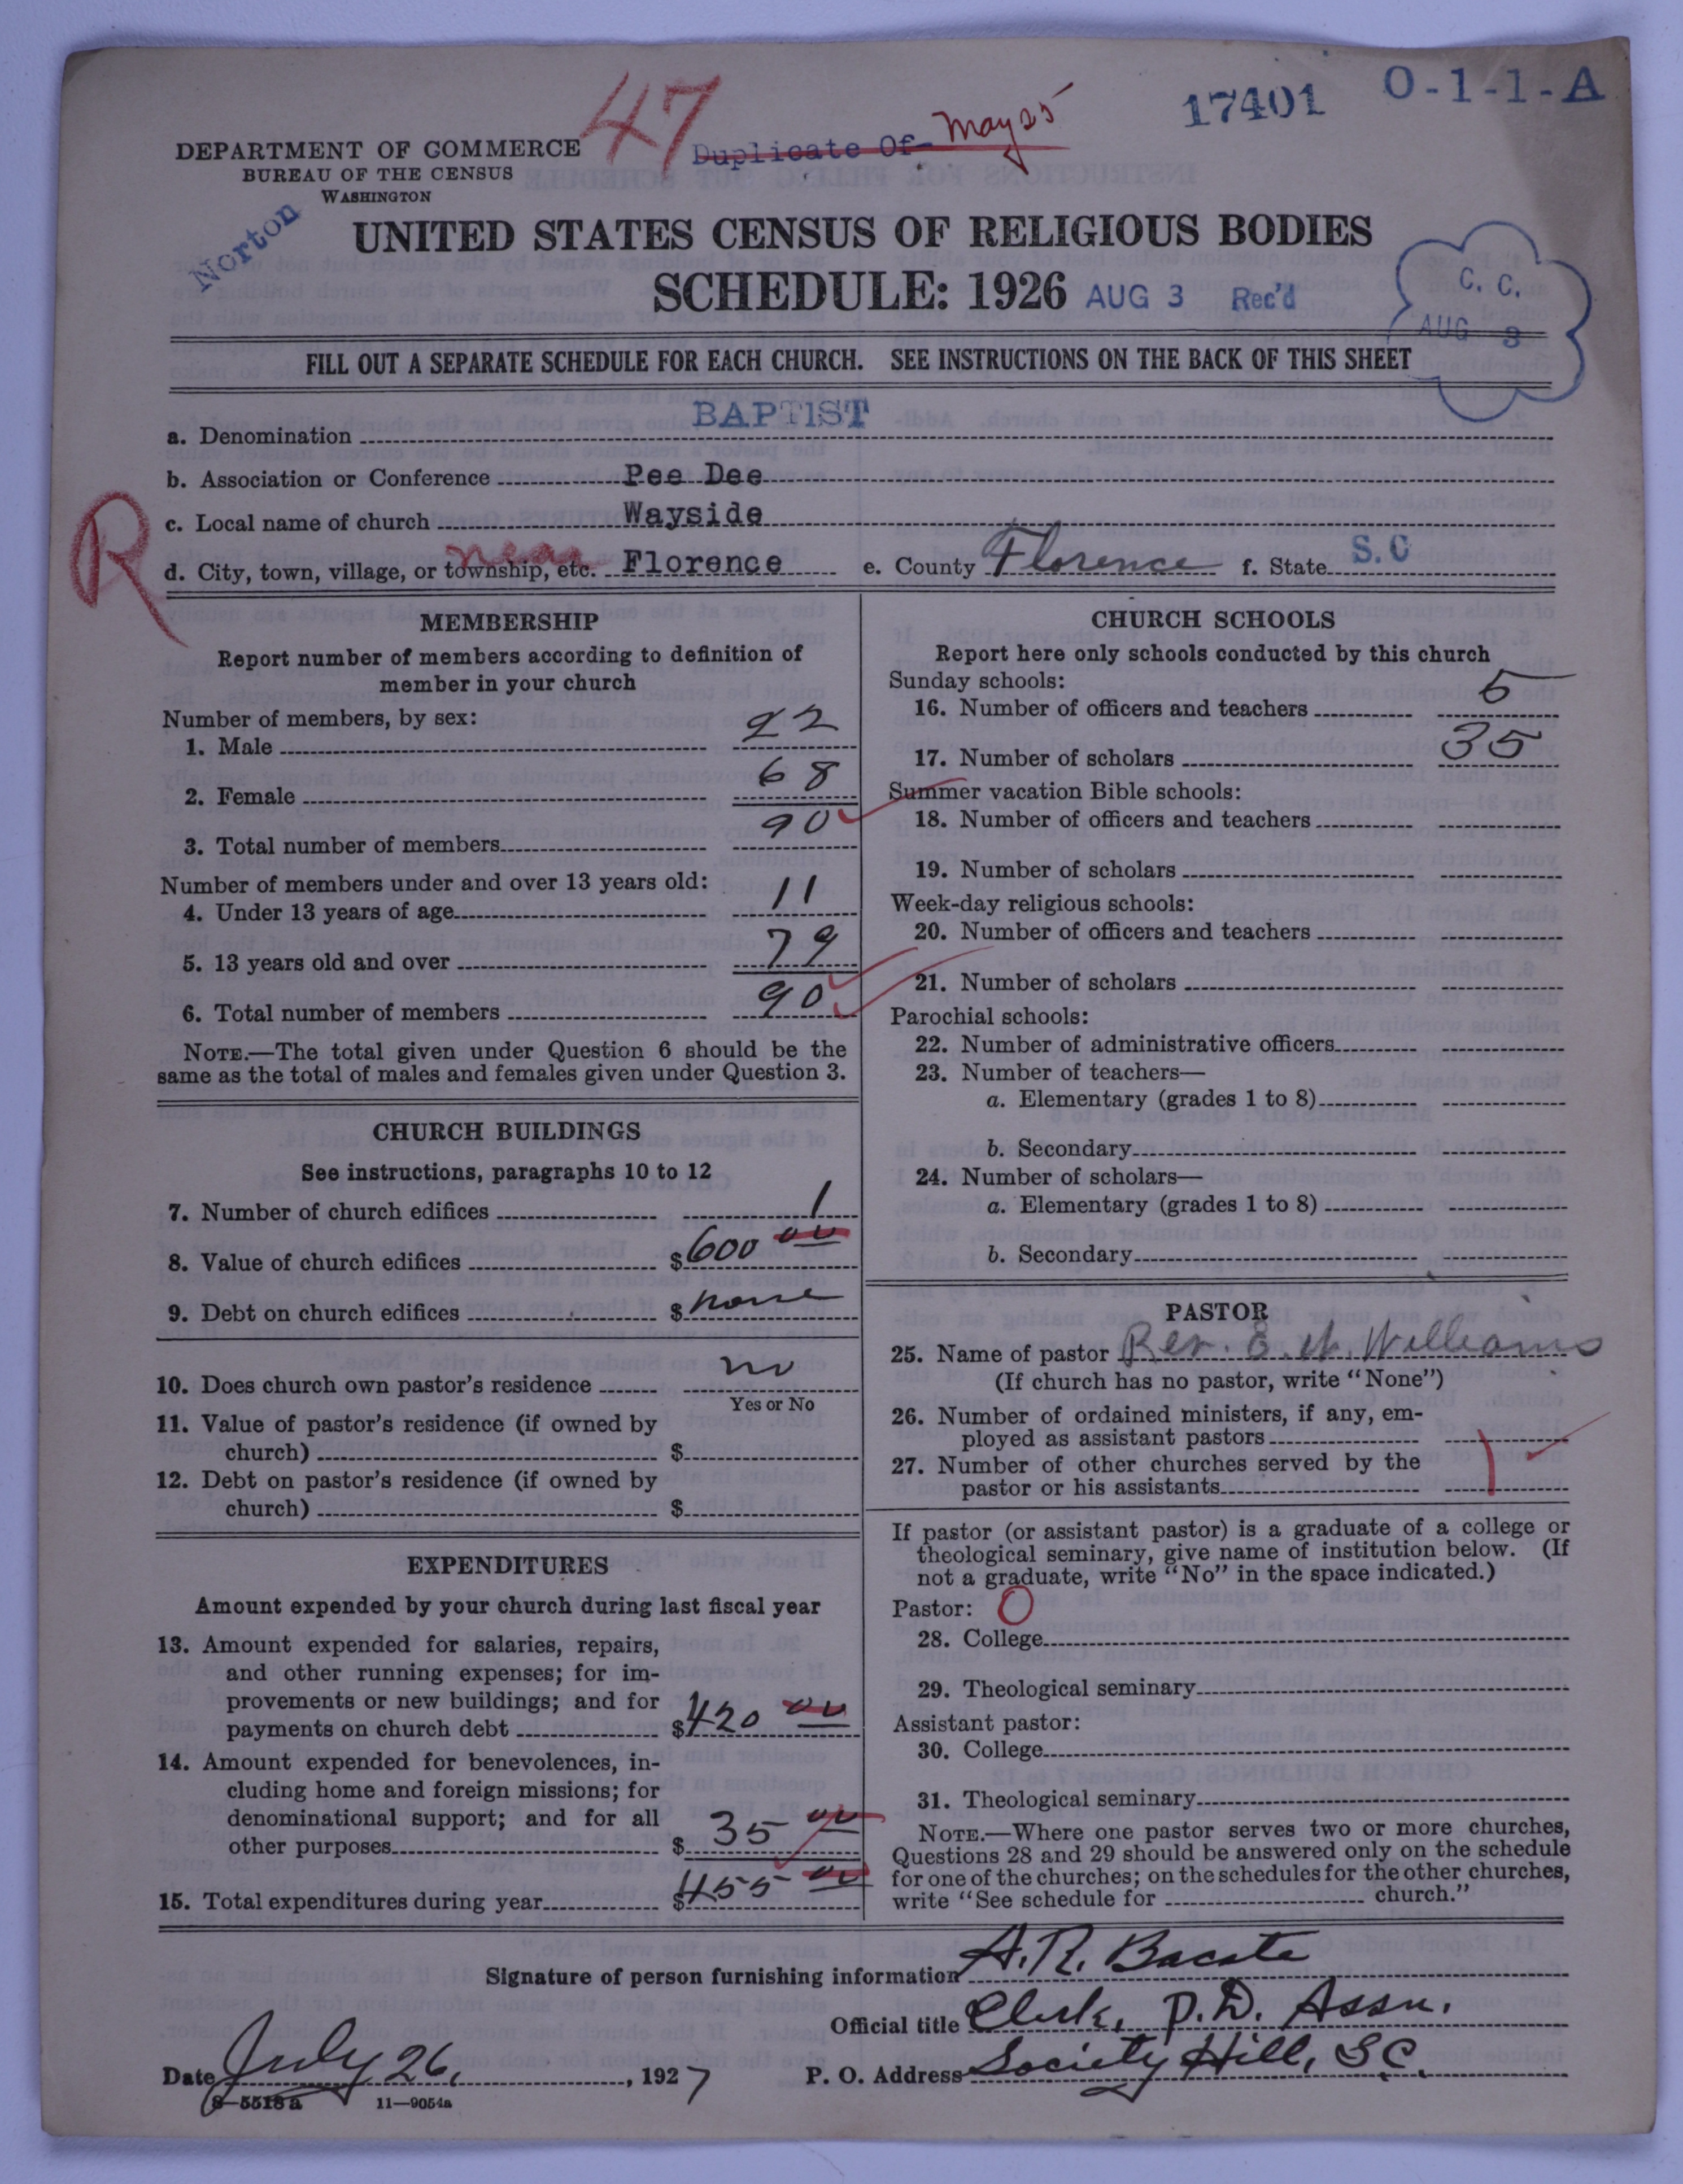 47
Duplicate Of May 25
17401
O-1-1-A
DEPARTMENT OF COMMERCE
BUREAU OF THE CENSUS
WASHINGTON
Norton
UNITED STATES CENSUS OF RELIGIOUS BODIES
SCHEDULE: 1926 AUG 3 Rec'd
C. C.
AUG 3
FILL OUT A SEPARATE SCHEDULE FOR EACH CHURCH. SEE INSTRUCTIONS ON THE BACK OF THIS SHEET
a. Denomination BAPTIST
b. Association or Conference Pee Dee
R
c. Local name of church Wayside
d. City, town, village, or township, etc. near Florence e. County Florence f. State S.C
MEMBERSHIP
Report number of members according to definition of
member in your church
Number of members, by sex:
1. Male 22
2. Female 68
3. Total number of members 90
Number of members under and over 13 years old:
4. Under 13 years of age 11
5. 13 years old and over 79
6. Total number of members 90
NOTE.—The total given under Question 6 should be the
same as the total of males and females given under Question 3.
CHURCH BUILDINGS
See instructions, paragraphs 10 to 12
7. Number of church edifices 1
8. Value of church edifices $600 00
9. Debt on church edifices $ none
10. Does church own pastor's residence no
Yes or No
11. Value of pastor's residence (if owned by
church) $
12. Debt on pastor's residence (if owned by
church) $
EXPENDITURES
Amount expended by your church during last fiscal year
13. Amount expended for salaries, repairs,
and other running expenses; for im-
provements or new buildings; and for
payments on church debt $420 00
14. Amount expended for benevolences, in-
cluding home and foreign missions; for
denominational support; and for all
other purposes $ 35 00
15. Total expenditures during year $455 00
CHURCH SCHOOLS
Report here only schools conducted by this church
Sunday schools:
16. Number of officers and teachers 5
17. Number of scholars 35
Summer vacation Bible schools:
18. Number of officers and teachers
19. Number of scholars
Week-day religious schools:
20. Number of officers and teachers
21. Number of scholars
Parochial schools:
22. Number of administrative officers
23. Number of teachers—
a. Elementary (grades 1 to 8)
b. Secondary
24. Number of scholars—
a. Elementary (grades 1 to 8)
b. Secondary
PASTOR
25. Name of pastor Rev. E. W. Williams
(If church has no pastor, write "None")
26. Number of ordained ministers, if any, em-
ployed as assistant pastors
27. Number of other churches served by the
pastor or his assistants 1
If pastor (or assistant pastor) is a graduate of a college or
theological seminary, give name of institution below. (If
not a graduate, write "No" in the space indicated.)
Pastor: O
28. College
29. Theological seminary
Assistant pastor:
30. College
31. Theological seminary
NOTE.—Where one pastor serves two or more churches,
Questions 28 and 29 should be answered only on the schedule
for one of the churches; on the schedules for the other churches,
write "See schedule for church."
Signature of person furnishing information A. R. Bacote
Official title Clerk, P. D. Assn.
Date July 26, 1927 P. O. Address Society Hill, SC
8—5518 a 11—9054a